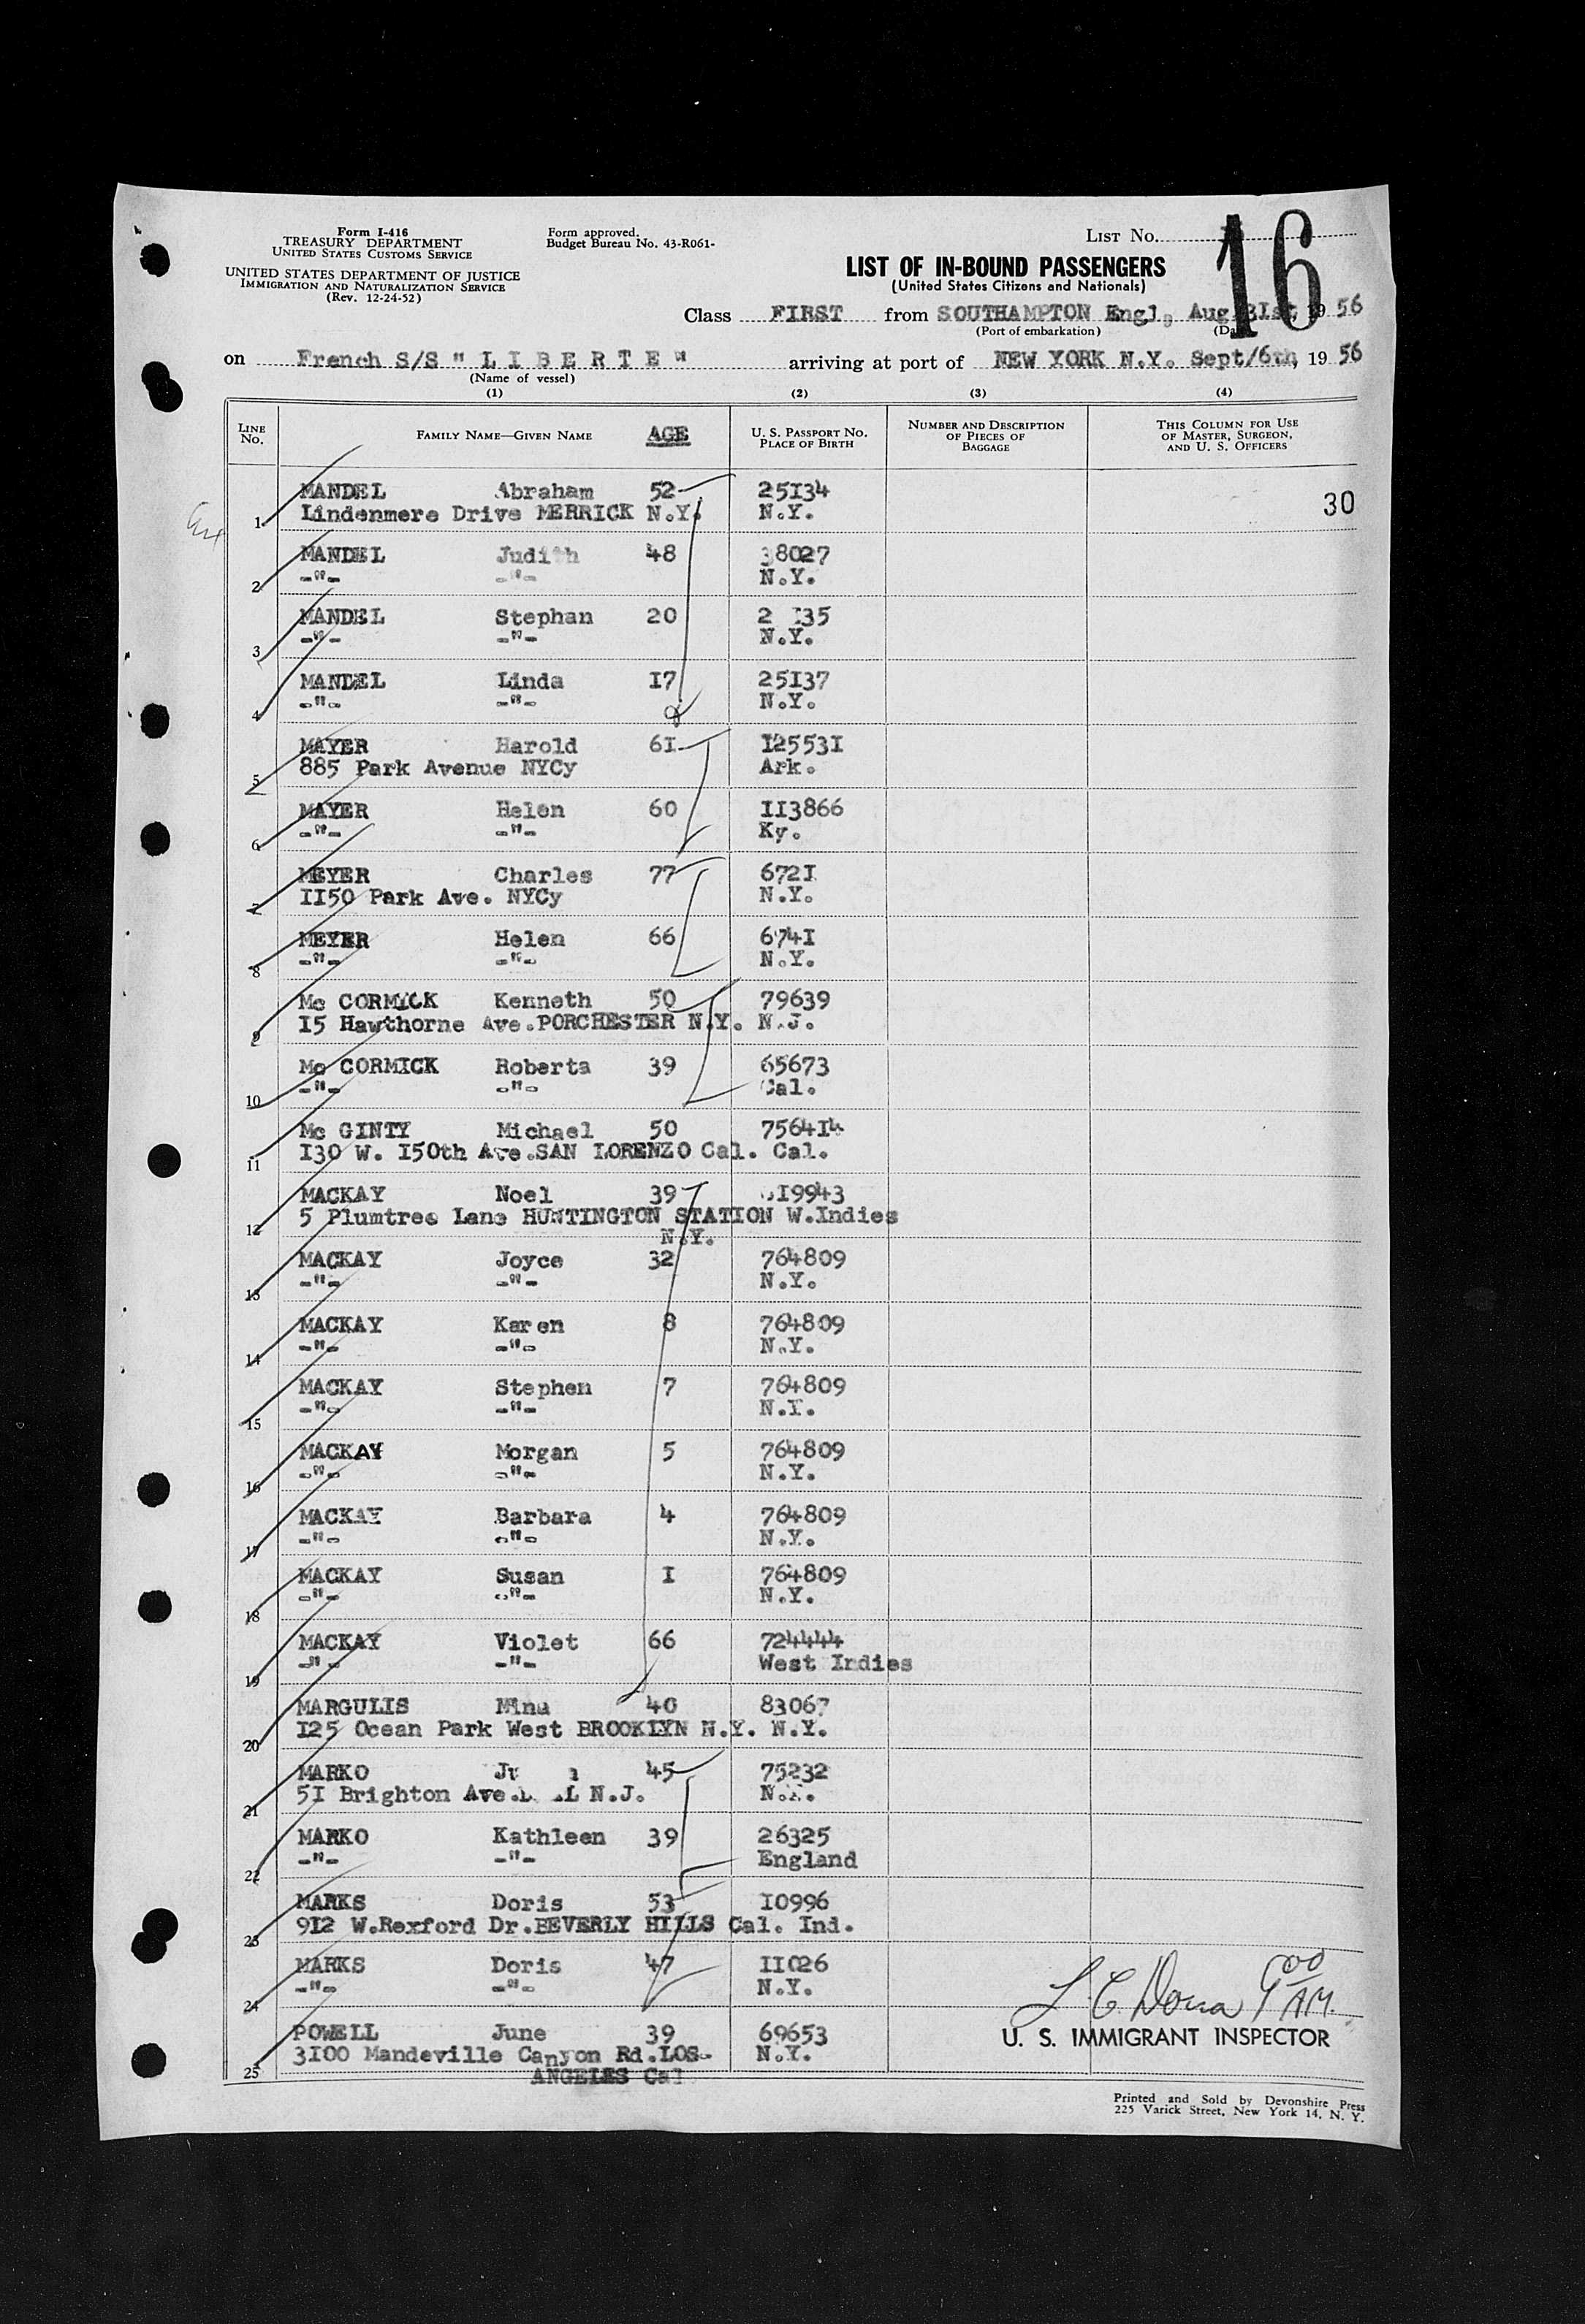 Form I-416
TREASURY DEPARTMENT
UNITED STATES CUSTOMS SERVICE
UNITED STATES DEPARTMENT OF JUSTICE
IMMIGRATION AND NATURALIZATION SERVICE
(Rev. 12-24-52)
Form approved.
Budget Bureau No. 43-R061-
LIST No.
16
LIST OF IN-BOUND PASSENGERS
(United States Citizens and Nationals)
Class FIRST from SOUTHAMPTON Engl, Aug 3Ist, 19 56
(Port of embarkation)
on French S/S " L I B E R T E " arriving at port of NEW YORK N.Y. Sept/6th, 19 56
(Name of vessel)
(1) (2) (3) (4)
LINE No. FAMILY NAME—GIVEN NAME AGE U. S. PASSPORT No. PLACE OF BIRTH NUMBER AND DESCRIPTION OF PIECES OF BAGGAGE THIS COLUMN FOR USE OF MASTER, SURGEON, AND U. S. OFFICERS
MANDEL Abraham 52 25I34
1 Lindenmere Drive MERRICK N.Y. N.Y. 30
MANDEL Judith 48 38027
2 -"- -"- N.Y.
MANDEL Stephan 20 2 I35
3 -"- -"- N.Y.
MANDEL Linda I7 25I37
4 -"- -"- N.Y.
MAYER Harold 6I I2553I
5 885 Park Avenue NYCy Ark.
MAYER Helen 60 II3866
6 -"- -"- Ky.
MEYER Charles 77 672I
7 II50 Park Ave. NYCy N.Y.
MEYER Helen 66 674I
8 -"- -"- N.Y.
Mc CORMICK Kenneth 50 79639
9 I5 Hawthorne Ave.PORCHESTER N.Y. N.J.
Mc CORMICK Roberta 39 65673
10 -"- -"- Cal.
Mc GINTY Michael 50 7564I4
11 I30 W. I50th Ave.SAN LORENZO Cal. Cal.
MACKAY Noel 39 I9943
12 5 Plumtree Lane HUNTINGTON STATION W.Indies
N.Y.
MACKAY Joyce 32 764809
13 -"- -"- N.Y.
MACKAY Karen 8 764809
14 -"- -"- N.Y.
MACKAY Stephen 7 764809
15 -"- -"- N.Y.
MACKAY Morgan 5 764809
16 -"- -"- N.Y.
MACKAY Barbara 4 764809
17 -"- -"- N.Y.
MACKAY Susan I 764809
18 -"- -"- N.Y.
MACKAY Violet 66 724444
19 -"- -"- West Indies
MARGULIS Mina 40 83067
20 I25 Ocean Park West BROOKLYN N.Y. N.Y.
MARKO 45 75232
21 5I Brighton Ave. N.J.
MARKO Kathleen 39 26325
22 -"- -"- England
MARKS Doris 53 I0996
23 9I2 W.Rexford Dr.BEVERLY HILLS Cal. Ind.
MARKS Doris 47 II026
24 -"- -"- N.Y.
POWELL June 39 69653
25 3I00 Mandeville Canyon Rd.LOS- N.Y.
ANGELES Cal
9 00 AM.
U. S. IMMIGRANT INSPECTOR
Printed and Sold by Devonshire Press
225 Varick Street, New York 14, N. Y.